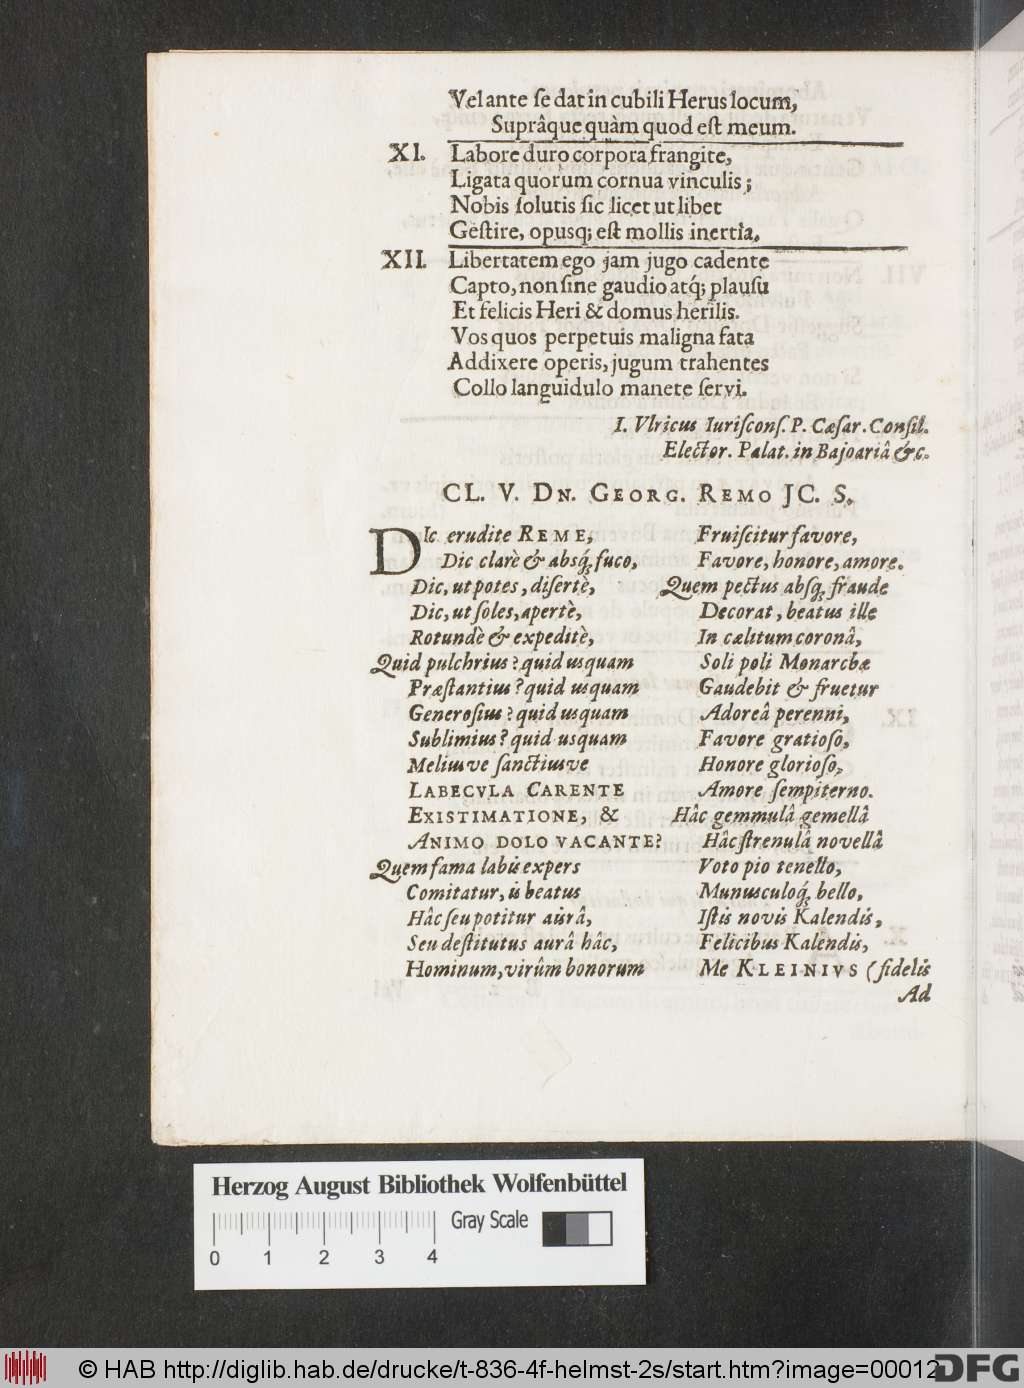 Vel ante se dat in cubili Herus locum,
Suprâque quàm quod est meum.
XI. Labore duro corpora frangite,
Ligata quorum cornua vinculis;
Nobis solutis sic licet ut libet
Gestire, opusq; est mollis inertia.
XII. Libertatem ego jam jugo cadente
Capto, non sine gaudio atq́; plausu
Et felicis Heri & domus herilis.
Vos quos perpetuis maligna fata
Addixere operis, jugum trahentes
Collo languidulo manete servi.
I. Vlricus Iurisconf. P. Cæsar. Consil.
Elector. Palat. in Bajoariâ &c.
CL. V. DN. GEORG. REMO JC. S.
DIc erudite REME,
Dic clarè & absq́; fuco,
Dic, ut potes, disertè,
Dic, ut soles, apertè,
Rotundè & expeditè,
Quid pulchrius? quid usquam
Præstantius? quid usquam
Generosius? quid usquam
Sublimius? quid usquam
Meliusve sanctiusve
LABECVLA CARENTE
EXISTIMATIONE, &
ANIMO DOLO VACANTE?
Quem fama labis expers
Comitatur, is beatus
Hâc seu potitur aurâ,
Seu destitutus aurâ hâc,
Hominum, virûm bonorum
Fruiscitur favore,
Favore, honore, amore.
Quem pectus absq; fraude
Decorat, beatus ille
In cælitum coronâ,
Soli poli Monarchæ
Gaudebit & fruetur
Adoreâ perenni,
Favore gratioso,
Honore glorioso,
Amore sempiterno.
Hâc gemmulâ gemellâ
Hâc strenulâ novellâ
Voto pio tenello,
Munusculoq́; bello,
Istis novis Kalendis,
Felicibus Kalendis,
Me KLEINIVS (fidelis
Ad
Herzog August Bibliothek Wolfenbüttel
Gray Scale
0 1 2 3 4
© HAB http://diglib.hab.de/drucke/t-836-4f-helmst-2s/start.htm?image=00012
DFG